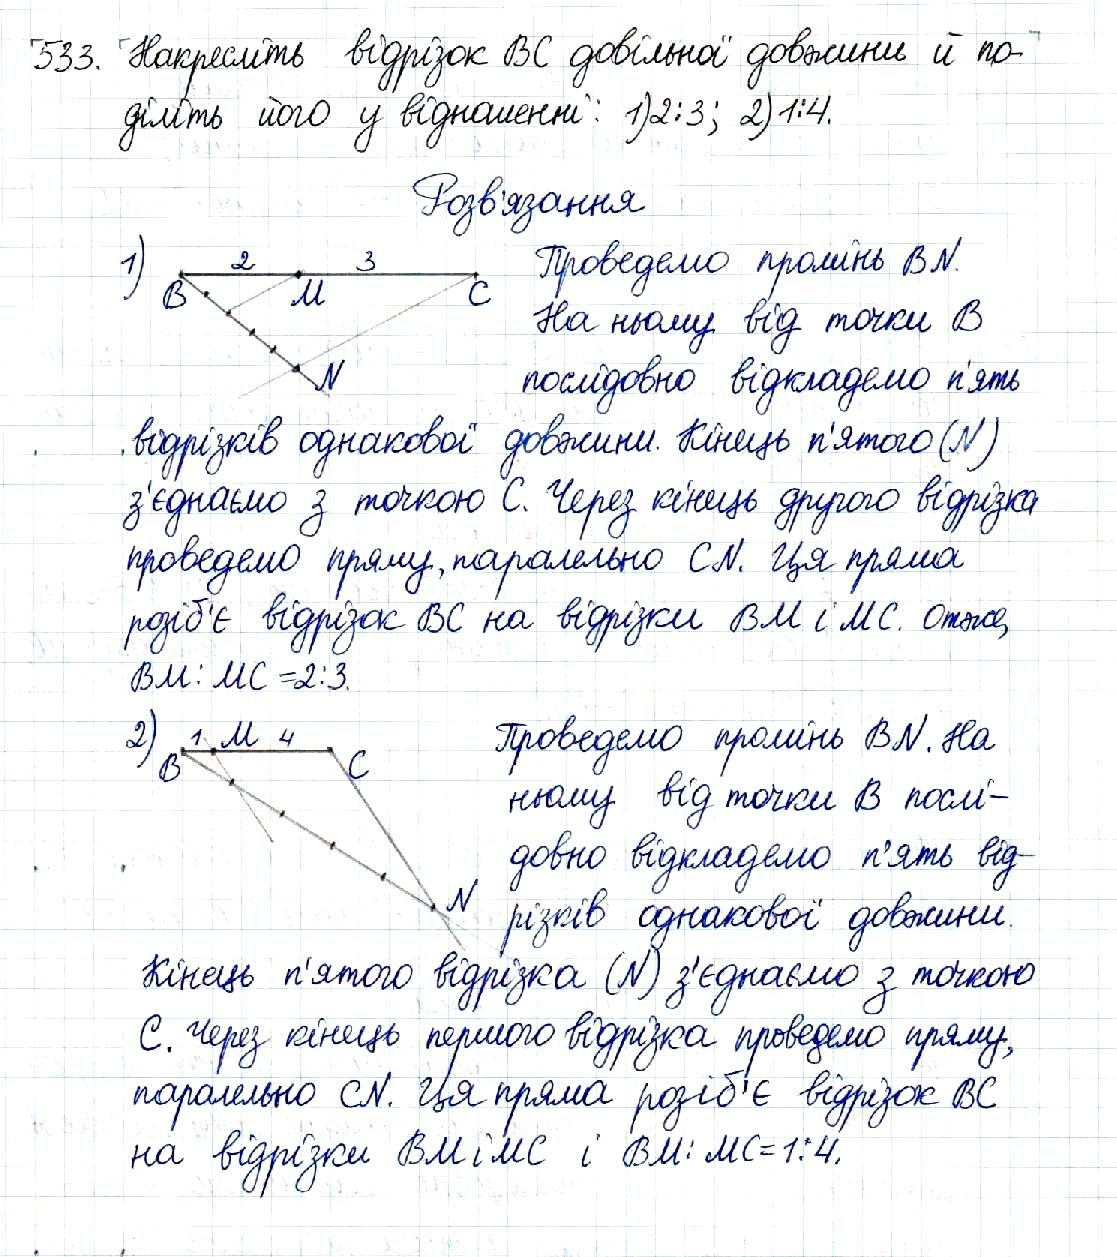 533. Накресліть відрізок BC довільної довжини й по-
діліть його у відношенні: 1) 2:3; 2) 1:4.
Розв'язання
1) 2 3
B M C
N
Проведемо промінь BN.
На ньому від точки B
послідовно відкладемо п'ять
відрізків однакової довжини. Кінець п'ятого (N)
з'єднаємо з точкою C. Через кінець другого відрізка
проведемо пряму, паралельно CN. Ця пряма
розіб'є відрізок BC на відрізки BM і MC. Отже,
BM:MC=2:3.
2) 1 M 4
B C
N
Проведемо промінь BN. На
ньому від точки B послі-
довно відкладемо п'ять від-
різків однакової довжини.
Кінець п'ятого відрізка (N) з'єднаємо з точкою
C. Через кінець першого відрізка проведемо пряму,
паралельно CN. Ця пряма розіб'є відрізок BC
на відрізки BM і MC і BM:MC=1:4.